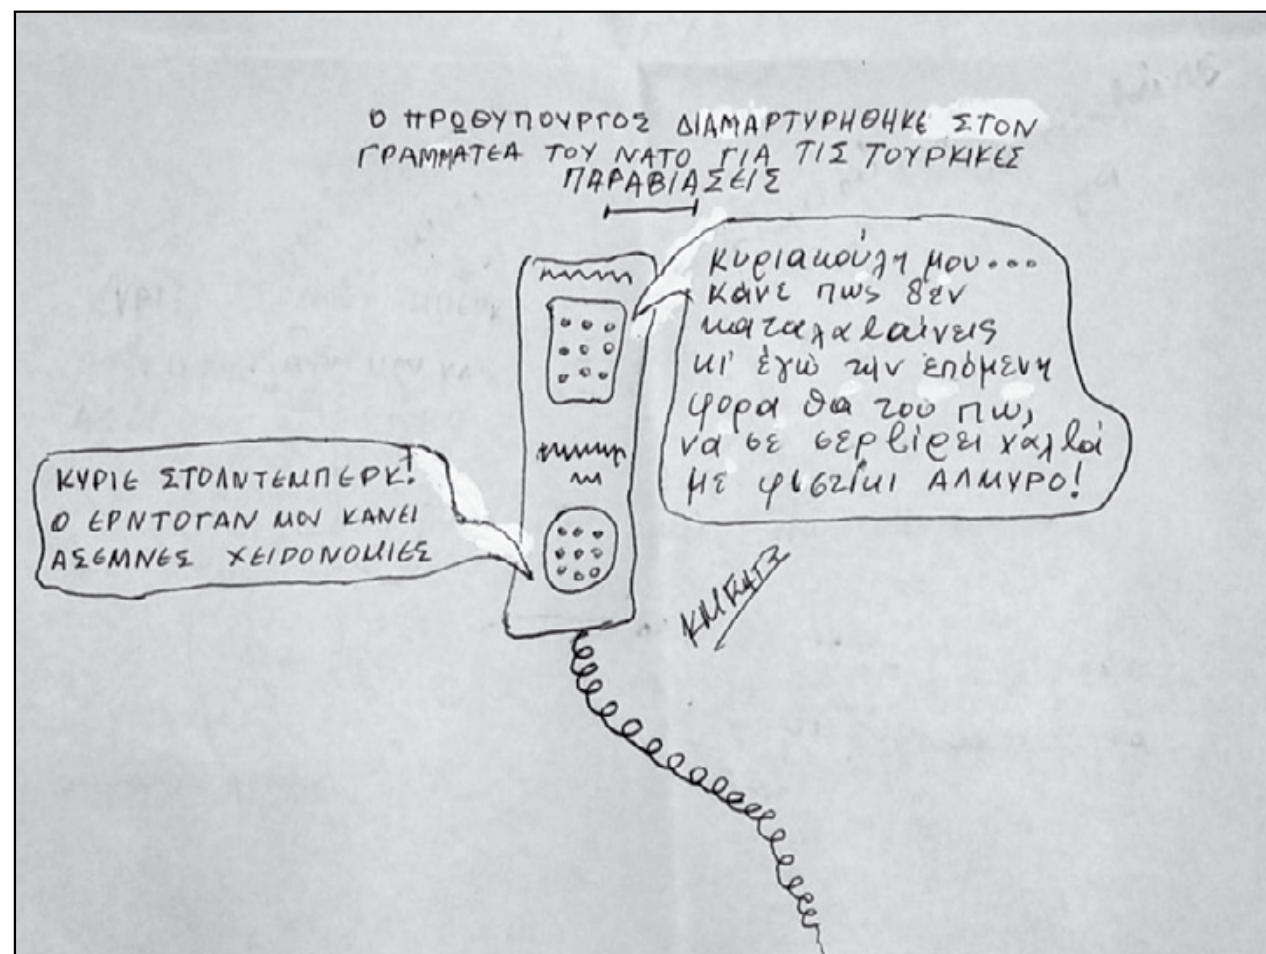 Ο ΠΡΩΘΥΠΟΥΡΓΟΣ ΔΙΑΜΑΡΤΥΡΗΘΗΚΕ ΣΤΟΝ
ΓΡΑΜΜΑΤΕΑ ΤΟΥ ΝΑΤΟ ΓΙΑ ΤΙΣ ΤΟΥΡΚΙΚΕΣ
ΠΑΡΑΒΙΑΣΕΙΣ
Κυριακούλη μου...
κάνε πως δεν
καταλαβαίνεις
κι' έγώ την επόμενη
φορα θα του πω,
να σε σερβίρει χαλβά
με φιστίκι ΑΛΜΥΡΟ!
ΚΥΡΙΕ ΣΤΟΛΝΤΕΜΠΕΡΚ!
Ο ΕΡΝΤΟΓΑΝ ΜΟΥ ΚΑΝΕΙ
ΑΣΕΜΝΕΣ ΧΕΙΡΟΝΟΜΙΕΣ